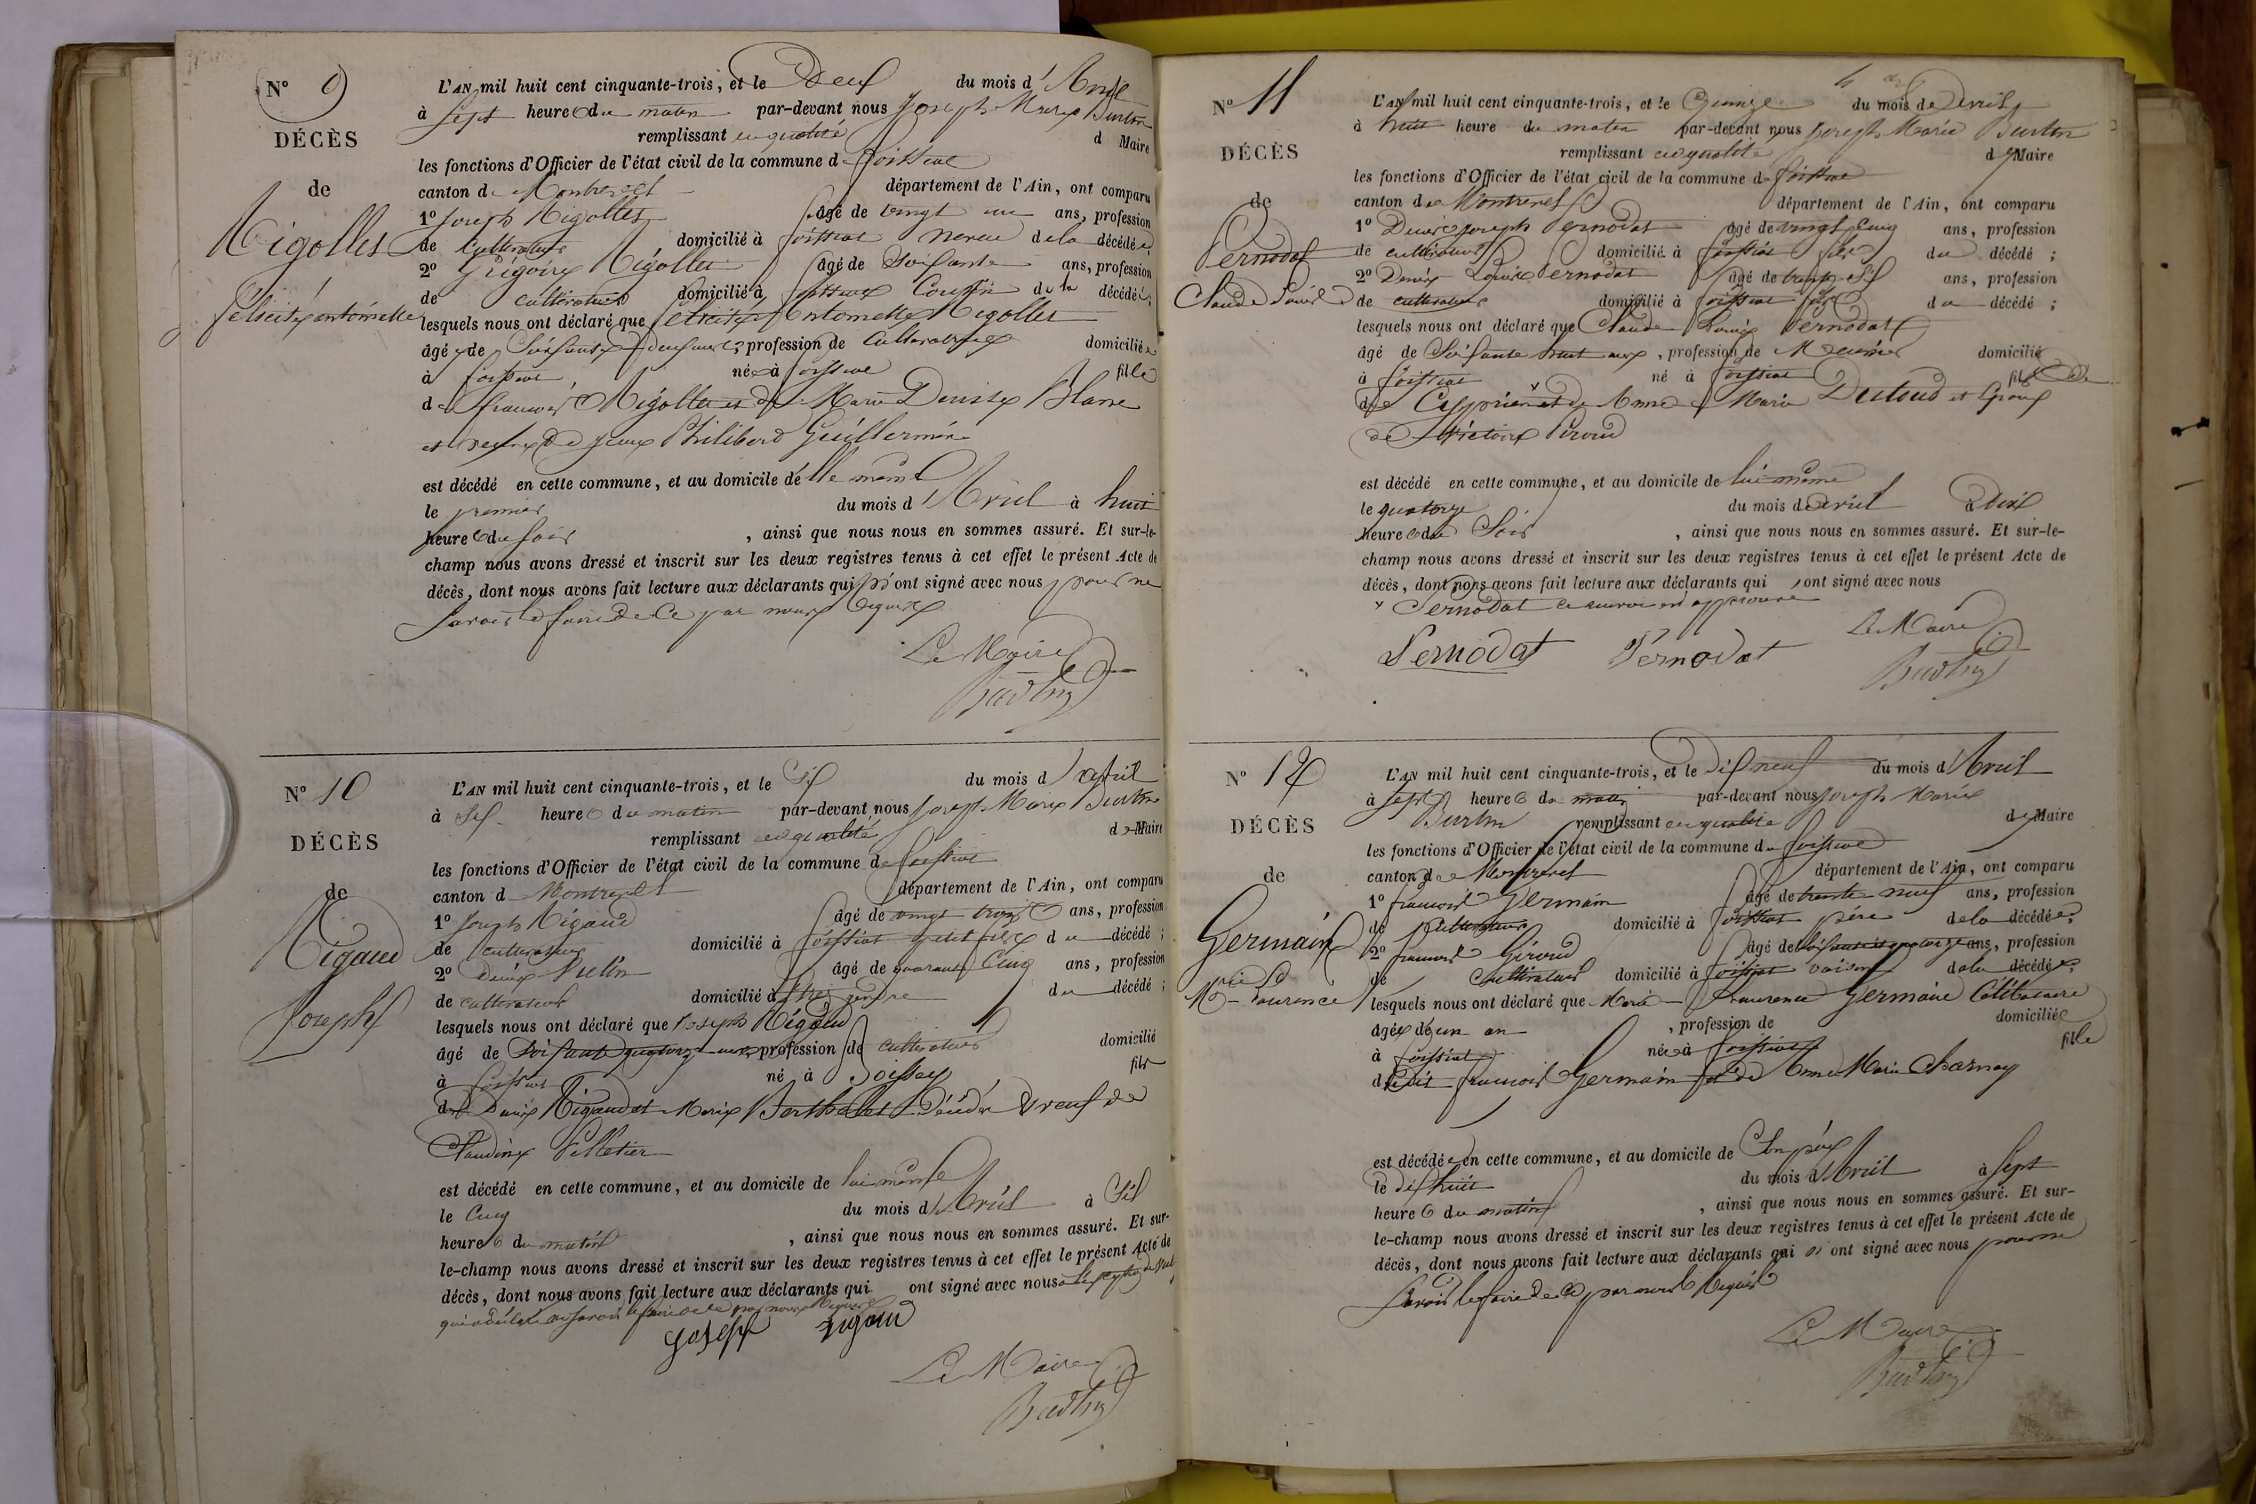 Nº 9
DÉCÈS
de
Rigollet
Félicité antoinette
L'AN mil huit cent cinquante-trois, et le Deux du mois d'Avril
à Sept heures du matin par-devant nous Joseph Marie Burtin
remplissant en qualité d Maire
les fonctions d'Officier de l'état civil de la commune de foissiat
canton de Montrevel département de l'Ain, ont comparu
1º Joseph Rigollet âgé de vingt ans, profession
de cultivateur domicilié à foissiat neveu de la décédée
2º Grégoire Rigollet âgé de Soixante ans, profession
de cultivateur domicilié à foissiat Cousin de la décédée;
lesquels nous ont déclaré que félicité Antoinette Rigollet
âgée de Soixante profession de Cultivatrice domiciliée
à foissiat née à foissiat fille
de françois Rigollet et de Marie Denise Blanc
et veuve de Philibert Guillermin
est décédé en cette commune, et au domicile d'elle même
le premier du mois d'Avril à huit
heures du soir, ainsi que nous nous en sommes assuré. Et sur-le-
champ nous avons dressé et inscrit sur les deux registres tenus à cet effet le présent Acte de
décès, dont nous avons fait lecture aux déclarants qui n'ont signé avec nous pour ne
Savoir le faire de ce par nous requis
Le Maire
Burtin
Nº 10
DÉCÈS
de
Rigaud
Joseph
L'AN mil huit cent cinquante-trois, et le Six du mois d'avril
à Six heures du matin par-devant nous Joseph Marie Burtin
remplissant en qualité de Maire
les fonctions d'Officier de l'état civil de la commune de foissiat
canton d Montrevel département de l'Ain, ont comparu
1º Joseph Rigaud âgé de vingt trois ans, profession
de cultivateur domicilié à foissiat petit fils du décédé;
2º Denis Vulin âgé de quarante Cinq ans, profession
de cultivateur domicilié à gendre du décédé;
lesquels nous ont déclaré que Joseph Rigaud
âgé de Soixante quatorze ans profession de cultivateur domicilié
à foissiat né à fils
de Denis Rigaud et Marie Berthelet Décédés veuf de
Claudine Pelletier
est décédé en cette commune, et au domicile de lui même
le Cinq du mois d'Avril à Six
heures du matin, ainsi que nous nous en sommes assuré. Et sur-
le-champ nous avons dressé et inscrit sur les deux registres tenus à cet effet le présent Acte de
décès, dont nous avons fait lecture aux déclarants qui ont signé avec nous
qui a déclaré ne savoir le faire de ce par nous Requis
joseph rigaud
Le Maire
Burtin
Nº 11
DÉCÈS
de
Pernodat
Claude Louis
L'AN mil huit cent cinquante-trois, et le Quinze du mois de avril
à huit heure du matin par-devant nous joseph Marie Burtin
remplissant en qualité de Maire
les fonctions d'Officier de l'état civil de la commune de foissiat
canton de Montrevel département de l'Ain, ont comparu
1º Denis Joseph Pernodat âgé de vingt Cinq ans, profession
de cultivateur domicilié à foissiat fils du décédé;
2º Denis Louis Pernodat âgé de trente ans, profession
de cultivateur domicilié à foissiat fils du décédé;
lesquels nous ont déclaré que Claude Louis Pernodat
âgé de Soixante huit ans, profession de Meunier domicilié
à foissiat né à foissiat fils
de Cyprien et de Anne Marie Dutoud et Epoux
de Victoire Giroud
est décédé en cette commune, et au domicile de lui même
le quatorze du mois d'avril à Dix
heures du Soir, ainsi que nous nous en sommes assuré. Et sur-le-
champ nous avons dressé et inscrit sur les deux registres tenus à cet effet le présent Acte de
décès, dont nous avons fait lecture aux déclarants qui ont signé avec nous
Pernodat ce renvoi est approuvé
Pernodat Pernodat
Le Maire
Burtin
Nº 12
DÉCÈS
de
Germain
Mrie Laurence
L'AN mil huit cent cinquante-trois, et le Dix neuf du mois d'Avril
à Sept heures du matin par-devant nous joseph Marie
Burtin remplissant en qualité de Maire
les fonctions d'Officier de l'état civil de la commune de foissiat
canton de Montrevel département de l'Ain, ont comparu
1º françois Germain âgé de trente neuf ans, profession
de cultivateur domicilié à foissiat père de la décédée;
2º françois Giroud âgé de Soixante et quatorze ans, profession
de Cultivateur domicilié à foissiat voisin de la décédée;
lesquels nous ont déclaré que Marie Laurence Germain Célibataire
âgée d'un an, profession de domiciliée
à foissiat née à foissiat fille
dudit françois Germain et de Anne Marie Charnay
est décédée en cette commune, et au domicile de Son père
le dix huit du mois d'Avril à Sept
heures du matin, ainsi que nous nous en sommes assuré. Et sur-
le-champ nous avons dressé et inscrit sur les deux registres tenus à cet effet le présent Acte de
décès, dont nous avons fait lecture aux déclarants qui n'ont signé avec nous pour ne
Savoir le faire de ce par nous Requis
Le Maire
Burtin